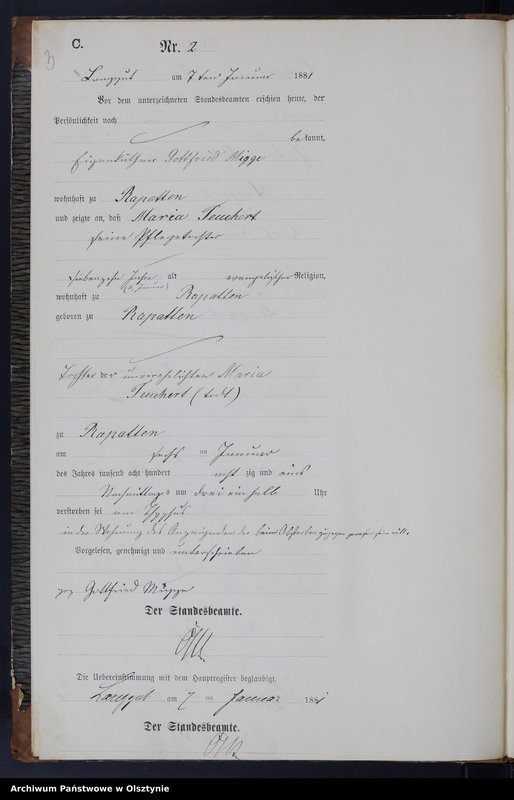 C.
Nr. 2
Langgut am 7ten Januar 1881
Vor dem unterzeichneten Standesbeamten erschien heute, der
Persönlichkeit nach
bekannt,
Eigenkäthner Gottfried Migge
wohnhaft zu Rapatten
und zeigte an, daß Maria Teuchert
seine Pflegetochter
siebenzehn Jahre alt evangelischer Religion,
wohnhaft zu Rapatten
geboren zu Rapatten
Tochter der unverehelichten Maria
Teuchert (todt)
zu Rapatten
am sechs ten Januar
des Jahres tausend acht hundert acht zig und eins
Nachmittags um drei ein halb Uhr
verstorben sei am Thyphus
in der Wohnung des Anzeigenden der beim Absterben zugegen gewesen sein will.
Vorgelesen, genehmigt und unterschrieben
gez Gottfried Migge
Der Standesbeamte.
Die Uebereinstimmung mit dem Hauptregister beglaubigt.
Langgut am 7 ten Januar 1881
Der Standesbeamte.
Archiwum Państwowe w Olsztynie